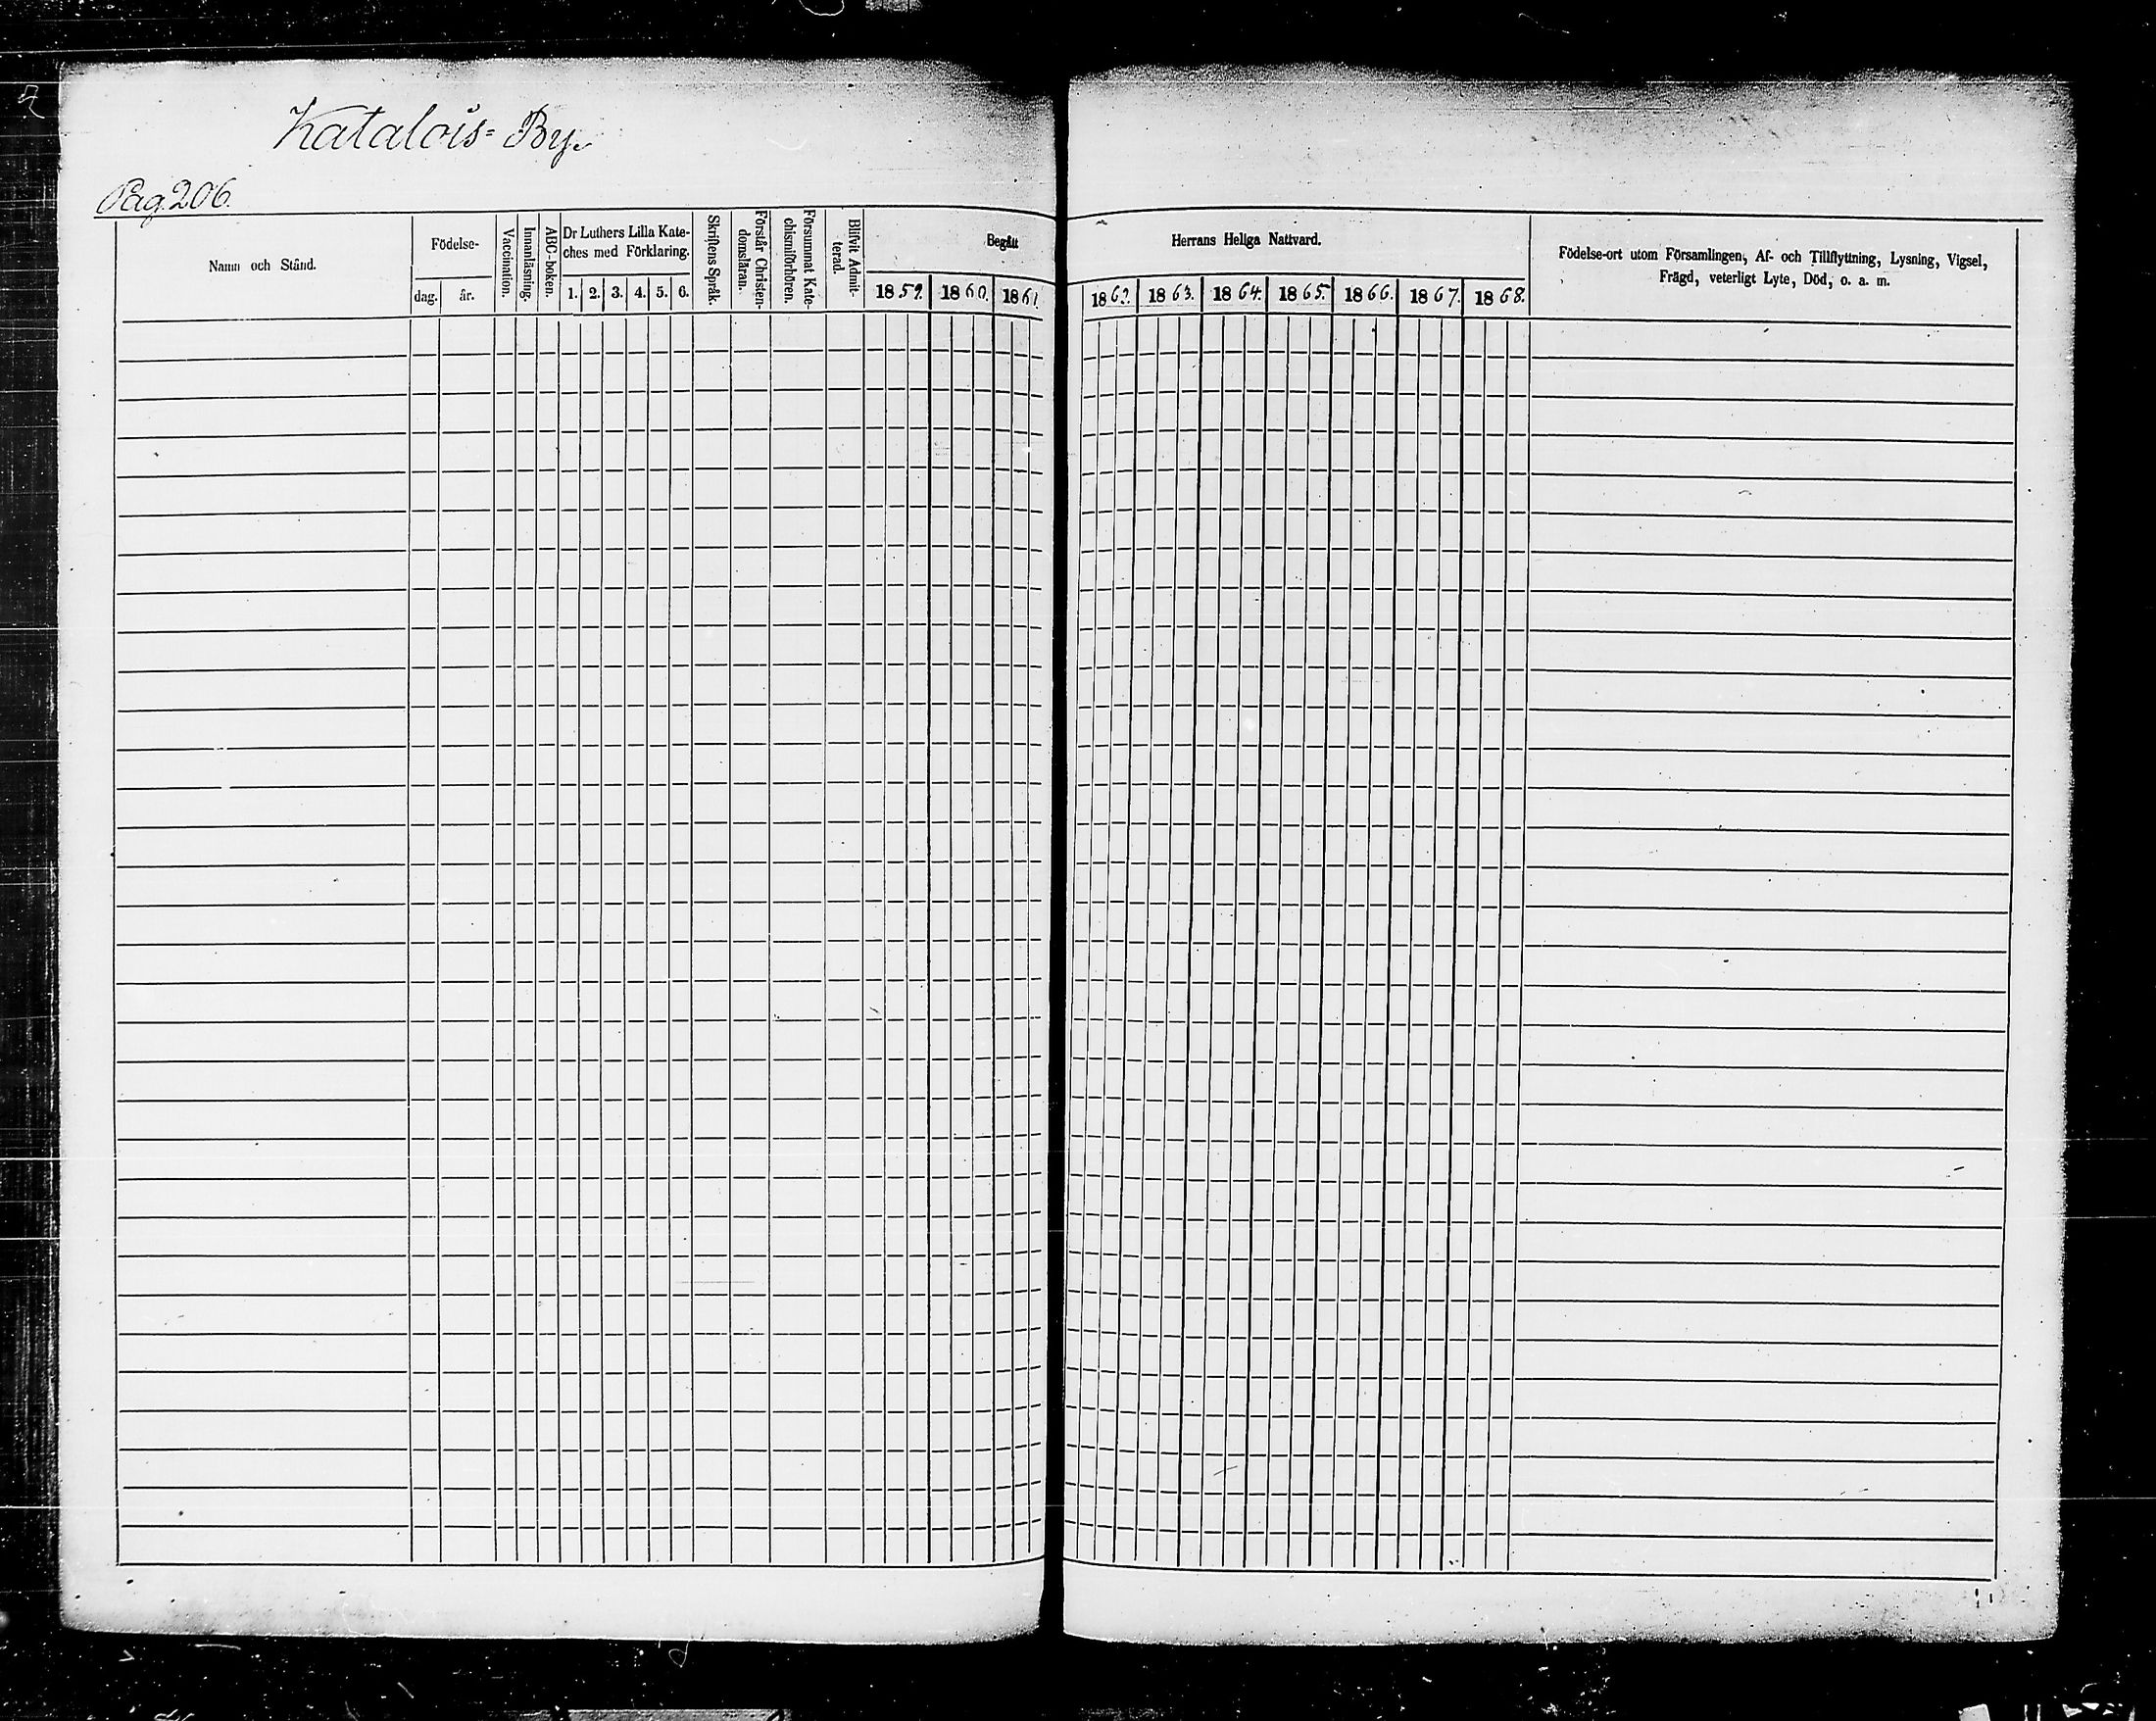 Katalois=By.
Pag.206.
Namn och Stånd.
Födelse-
dag. år.
Vaccination.
Innanläsning.
ABC-boken.
Dr Luthers Lilla Kate-
ches med Förklaring.
1. 2. 3. 4. 5. 6.
Skriftens Språk.
Förstår Christen-
domsläran.
Försummat Kate-
chismiförhören.
Blifvit Admit-
terad.
Begått Herrans Heliga Nattvard.
1859. 1860. 1861. 1862. 1863. 1864. 1865. 1866. 1867. 1868.
Födelse-ort utom Församlingen, Af- och Tillflyttning, Lysning, Vigsel,
Frägd, veterligt Lyte, Död, o. a. m.